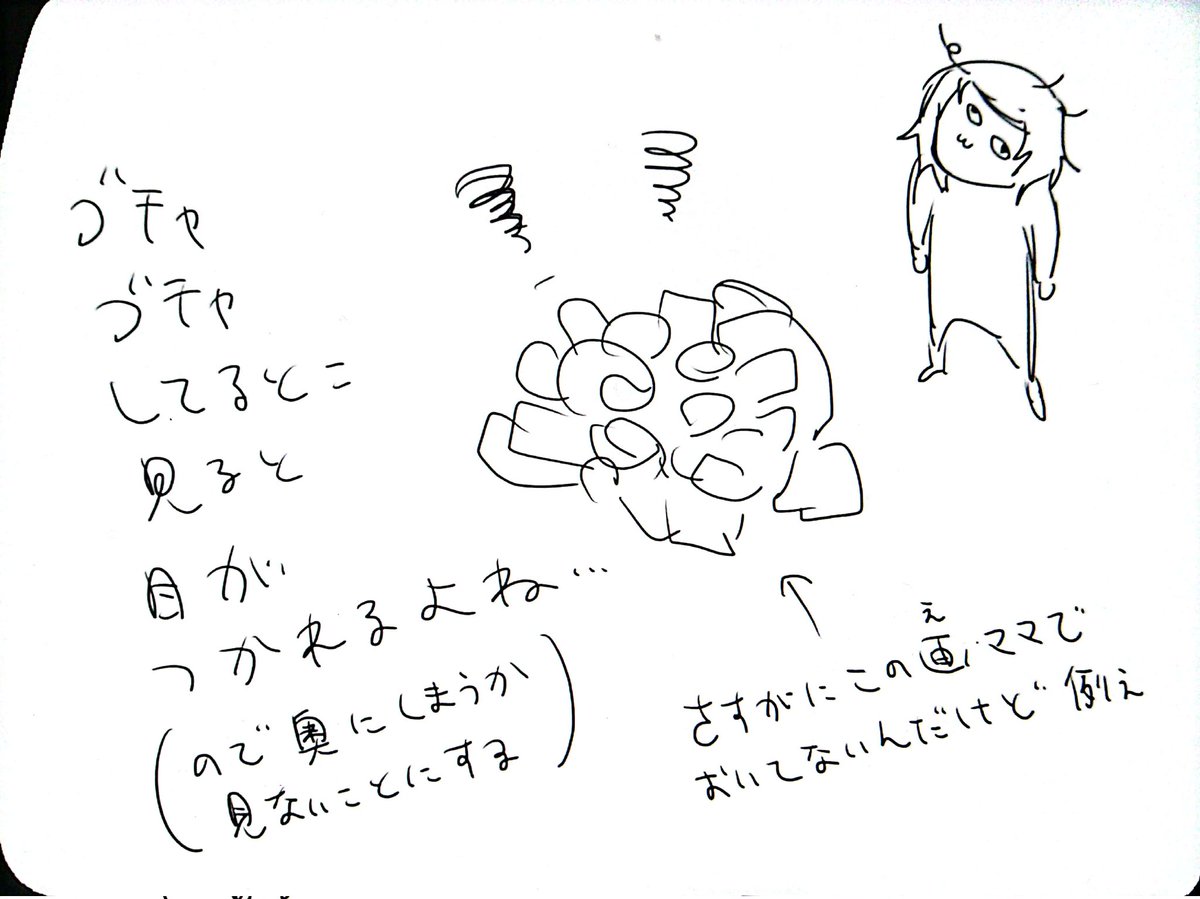 ゴチャ
ゴチャ
してるとこ
見ると
目が
つかれるよね…
(ので奥にしまうか
見ないことにする)
さすがにこの画ママで
え
おいてないんだけど例え